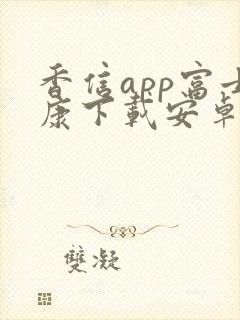 香信app富士
康下載安卓
雙凝